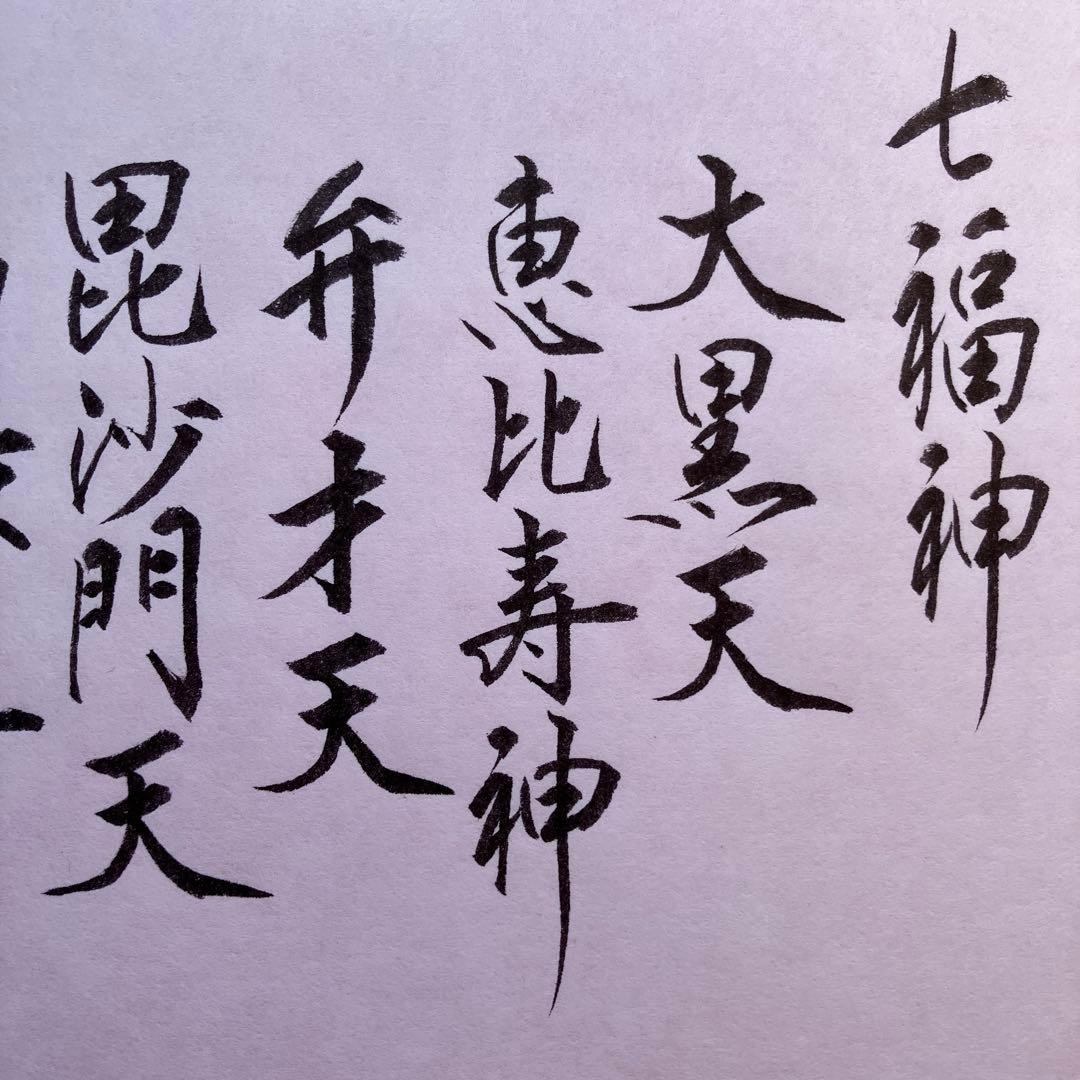 七福神
大黒天
恵比寿神
弁才天
毘沙門天